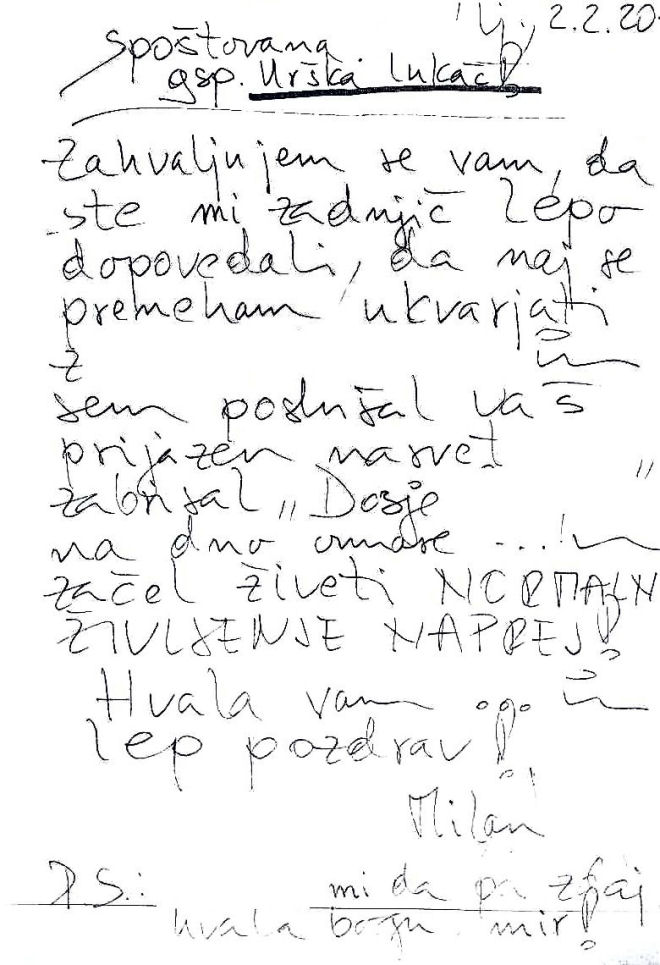 Lj, 2.2.20
Spoštovana
gsp. Urška Lukač!
Zahvaljujem se vam, da
ste mi zadnjič lepo
dopovedali, da naj se
premeham ukvarjati
z in
sem poslušal vaš
prijazen nasvet
zabrisal „Dosje "
na dno omare ...! in
začel živeti NORMALN
ŽIVLJENJE NAPREJ!
Hvala vam ... in
lep pozdrav!
Milan
P.S.: mi da pa zdaj
hvala bogu mir!